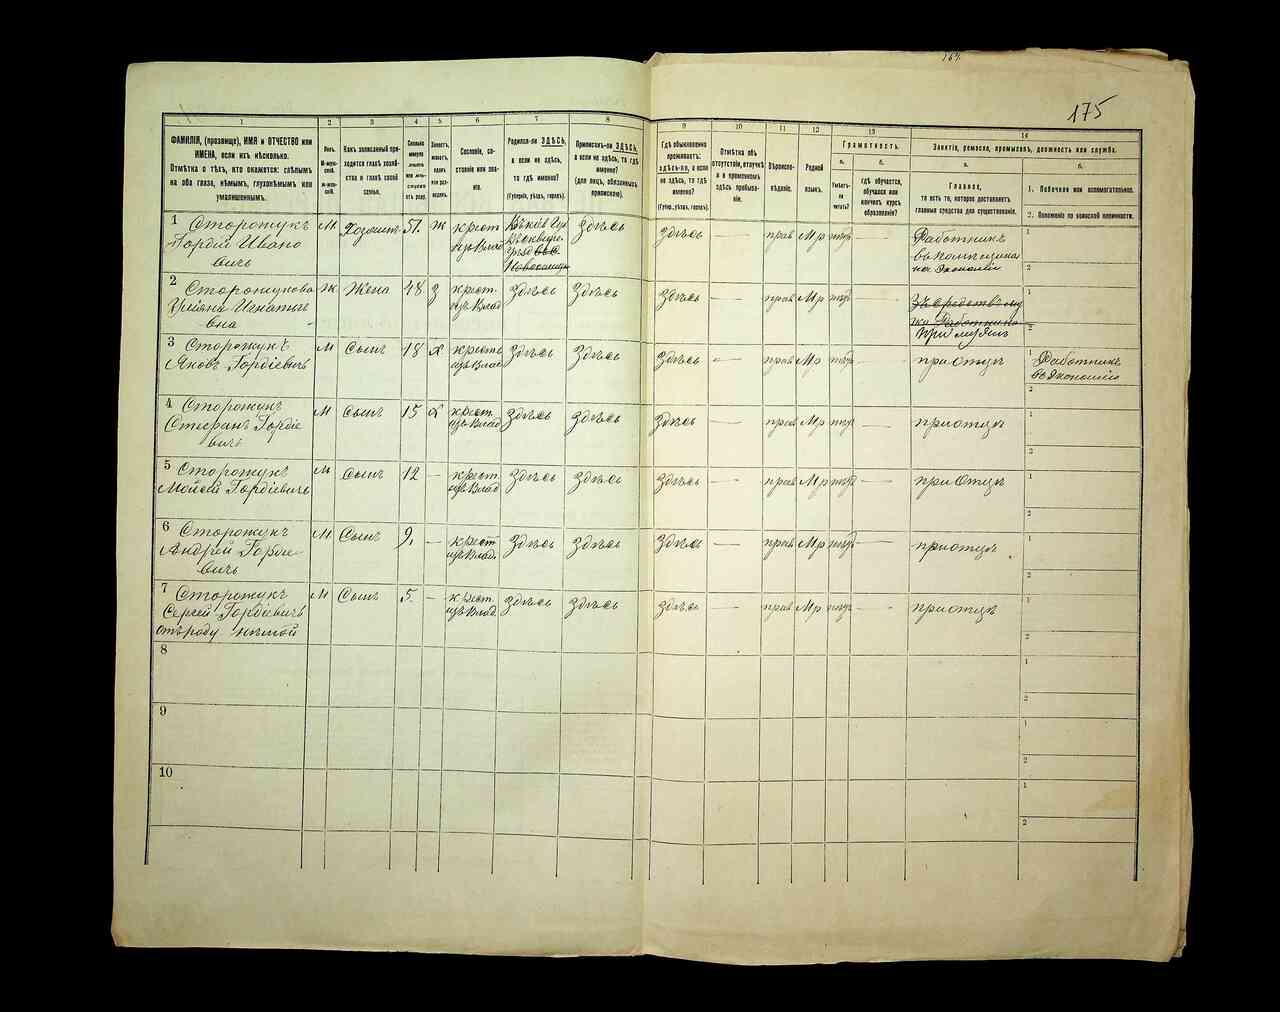 175
1
2
3
4
5
6
7
8
9
10
11
12
13
14
ФАМИЛІЯ, (прозвище), ИМЯ и ОТЧЕСТВО или
ИМЕНА, если ихъ нѣсколько.
Отмѣтка о тѣхъ, кто окажется: слѣпымъ
на оба глаза, нѣмымъ, глухонѣмымъ или
умалишеннымъ.
Полъ.
Какъ записанный при-
ходится главѣ хозяй-
ства и главѣ своей
семьи.
Сословіе, со-
стояніе или зва-
ніе.
Родился-ли ЗДѢСЬ,
а если не здѣсь,
то гдѣ именно?
(Губернія, уѣздъ, городъ).
Приписанъ-ли ЗДѢСЬ,
а если не здѣсь, то гдѣ
именно?
(для лицъ, обязанныхъ
припискою).
Гдѣ обыкновенно
проживаетъ:
здѣсь-ли, а если
не здѣсь, то гдѣ
именно?
(Губер., уѣздъ, городъ).
Отмѣтка объ
отсутствіи, отлучкѣ
и о временномъ
здѣсь пребыва-
ніи.
Вѣроиспо-
вѣданіе.
Родной
языкъ.
Грамотность.
а.
б.
Умѣетъ-
ли
читать?
гдѣ обучается,
обучался или
кончилъ курсъ
образованія?
Занятіе, ремесло, промыселъ, должность или служба.
а.
б.
Главное,
то есть то, которое доставляетъ
главныя средства для существованія.
1. Побочное или вспомогательное.
2. Положеніе по воинской повинности.
1 Сторожукъ
Гордій Ивано
вичъ
М
Хозяинъ
51.
Ж
крест
изъ Влад
Здѣсь
Здѣсь
прав
Мр
Работникъ
Экономіи
1
2
2 Сторожукова
Игнатьев
вна
Ж
Жена
48
З
крест.
изъ Влад
Здѣсь
Здѣсь
Здѣсь
прав
Мр
При мужѣ
1
2
3 Сторожукъ
Яковъ Гордіевичъ
М
Сынъ
18
Х
крестъ
изъ Влад
Здѣсь
Здѣсь
Здѣсь
—
прав
Мр
—
при Отцѣ
1 Работникъ
въ Экономіи
2
4 Сторожукъ
Стефанъ Гордіе
вичъ
М
Сынъ
15
Х
крест.
изъ Влад
Здѣсь
Здѣсь
Здѣсь
—
прав
Мр
—
при отцѣ
1
2
5 Сторожукъ
Мойсей Гордіевичъ
М
Сынъ
12
—
крест.
изъ Влад
Здѣсь
Здѣсь
Здѣсь
—
прав
Мр
—
при Отцѣ
1
2
6 Сторожукъ
Андрей Гордіе
вичъ
М
Сынъ
9.
—
крест
изъ Влад.
Здѣсь
Здѣсь
Здѣсь
—
прав
Мр
—
при отцѣ
1
2
7 Сторожукъ
Сергей Гордіевичъ
отъ роду нѣмой
М
Сынъ
5.
—
крест.
изъ Влад.
Здѣсь
Здѣсь
Здѣсь
—
прав
Мр
—
при отцѣ
1
2
8
1
2
9
1
2
10
1
2